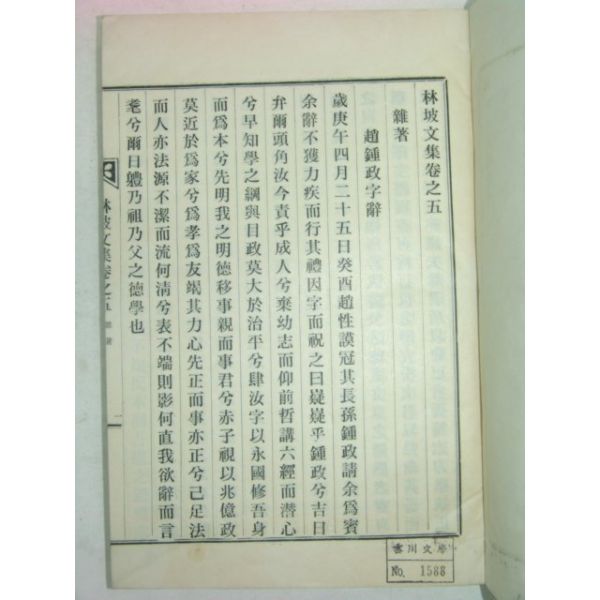 林坡文集卷之五
雜著
趙鍾政字辭
歲庚午四月二十五日癸酉趙性謨冠其長孫鍾政請余爲賓
余辭不獲力疾而行其禮因字而祝之曰嶷嶷乎鍾政兮吉日
弁爾頭角汝今責乎成人兮棄幼志而仰前哲講六經而潛心
兮早知學之綱與目政莫大於治平兮肆汝字以永國修吾身
而爲本兮先明我之明德移事親而事君兮赤子視以兆億政
莫近於爲家兮爲孝爲友竭其力心先正而事亦正兮己足法
而人亦法源不潔而流何清兮表不端則影何直我欲辭而言
耄兮爾曰軆乃祖乃父之德學也
林坡文集卷之五 雜著
一
雲川文庫
No. 1588